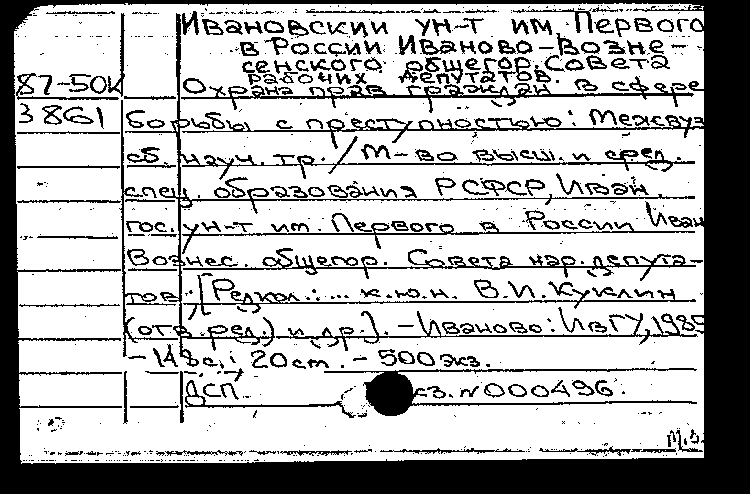 Ивановский ун-т им. Первого
в России Иваново-Возне-
сенского общегор. Совета
рабочих депутатов.
87-50к Охрана прав граждан в сфере
3861 борьбы с преступностью: Межвуз
сб. науч. тр. / М-во высш. и сред.
спец. образования РСФСР, Иван.
гос. ун-т им. Первого в России Иван
Вознес. общегор. Совета нар. депута-
тов; [Редкол.: ... к.ю.н. В.И. Куклин
(отв. ред.) и др.]. - Иваново: ИвГУ, 1985
- 148с.; 20см. - 500экз.
ДСП. кз. №000496.